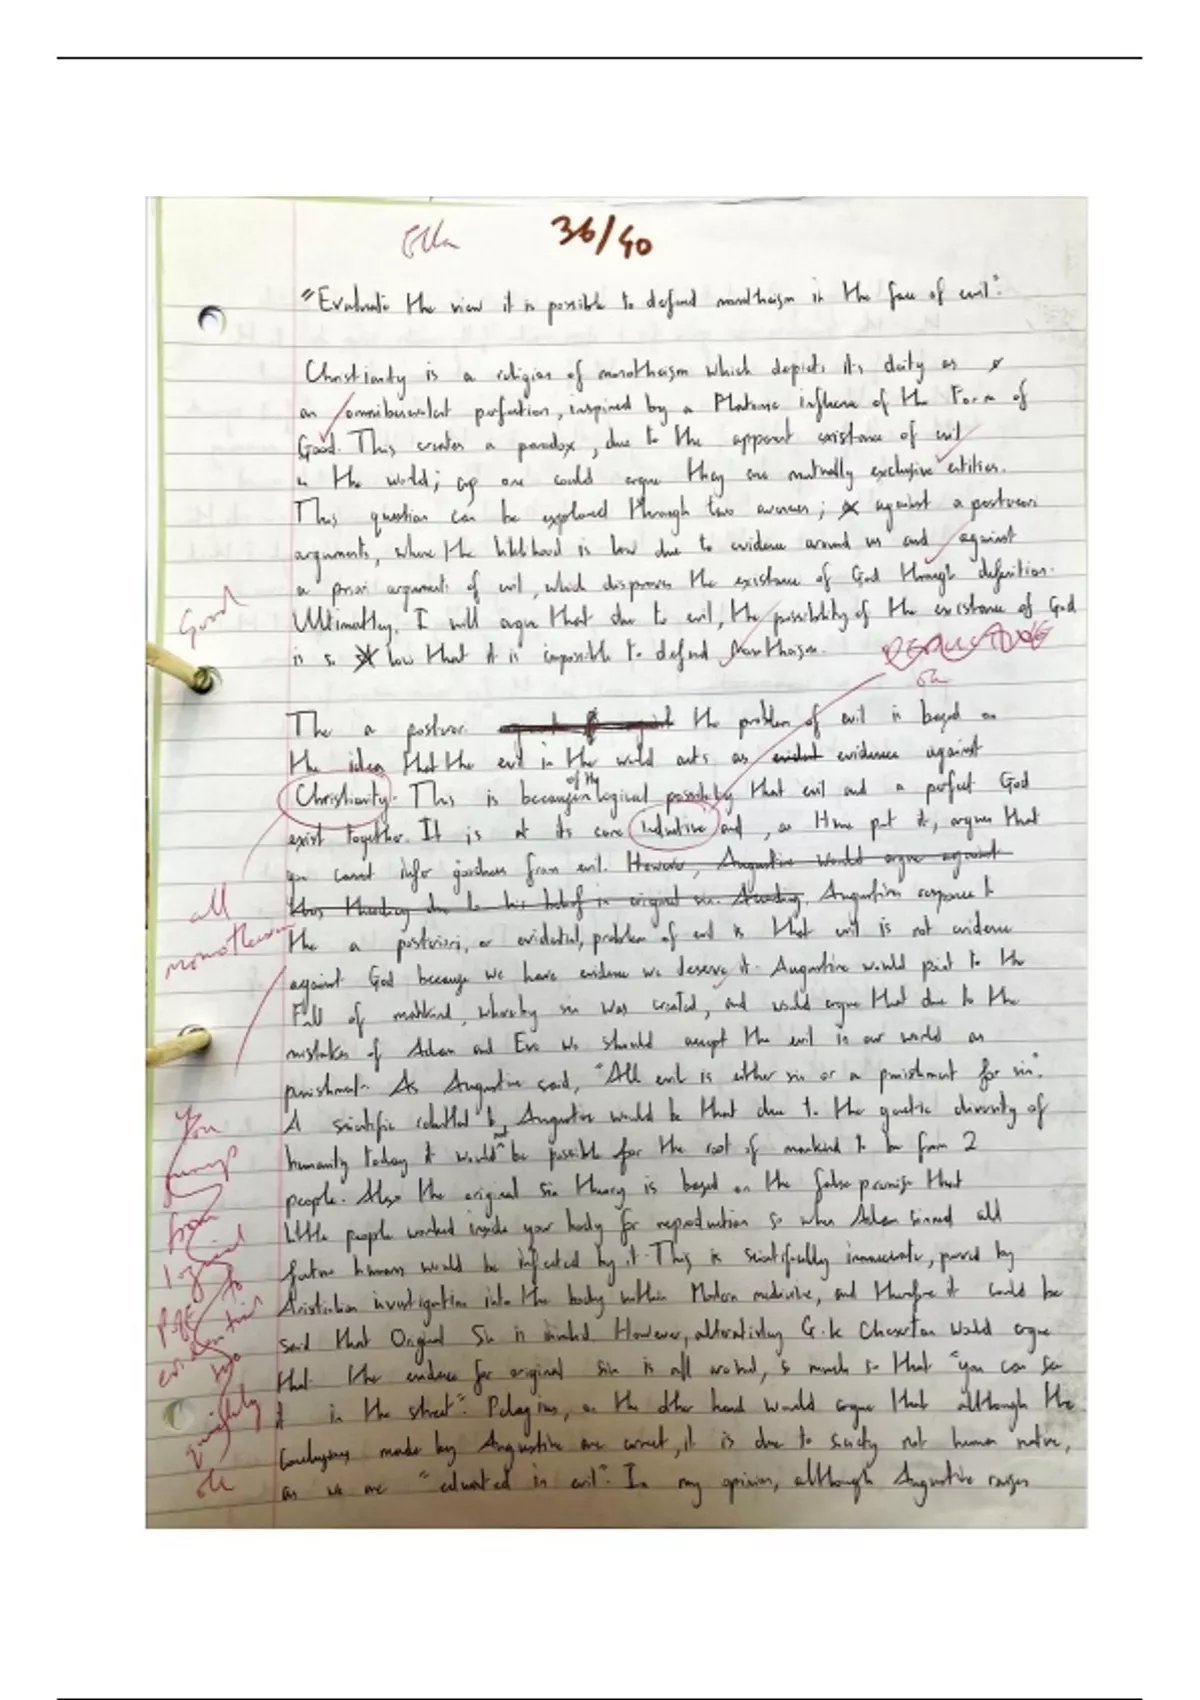 Ella
36/40
"Evaluate the view it is possible to defend monotheism in the face of evil".
Christianity is a religion of monotheism which depicts its deity as
an omnibenevolent perfection, inspired by a Platonic influence of the Form of
Good. This creates a paradox, due to the apparent existance of evil
in the world; one could argue they are mutually exclusive entities.
This question can be explored through two avenues; against a posteriori
arguments, where the likelihood is low due to evidence around us and against
a priori arguments of evil, which disproves the existance of God through definition.
Good
Ultimatley, I will argue that due to evil, the possibility of the existance of God
is so low that it is impossible to defend Monotheism.
DEDUCTIVE
The a posteriori the problem of evil is based on
the idea that the evil in the world acts as evident evidence against
Christianity. This is because of the logical possibility that evil and a perfect God
exist together. It is at its core inductive and, as Hume put it, argues that
you cannot infer goodness from evil. However, Augustine would argue against
this theodicy due to his belief in original sin. Augustines response to
all
monotheism
the a posteriori, or evidential, problem of evil is that evil is not evidence
against God because we have evidence we deserve it. Augustine would point to the
Fall of mankind, whereby sin was created, and would argue that due to the
mistakes of Adam and Eve we should accept the evil in our world as
punishment. As Augustine said, "All evil is either sin or a punishment for sin".
A scientific rebuttal to Augustine would be that due to the genetic diversity of
humanity today it would not be possible for the root of mankind to be from 2
people. Also the original sin theory is based on the false premise that
little people worked inside your body for reproduction so when Adam sinned all
future humans would be infected by it. This is scientifically innacurate, proved by
investigation into the body within Modern medicine, and therefore it could be
said that Original Sin is invalid. However, G.K Cheserton would argue
that the evidence for original sin is all around, so much so that "you can see
it in the street". Pelagius, on the other hand would argue that although the
conclusions made by Augustine are correct, it is due to society not human nature,
as we are "educated in evil". In my opinion, although Augustine raises
You
jump
from
logical
POE to
evidential
too
quickly